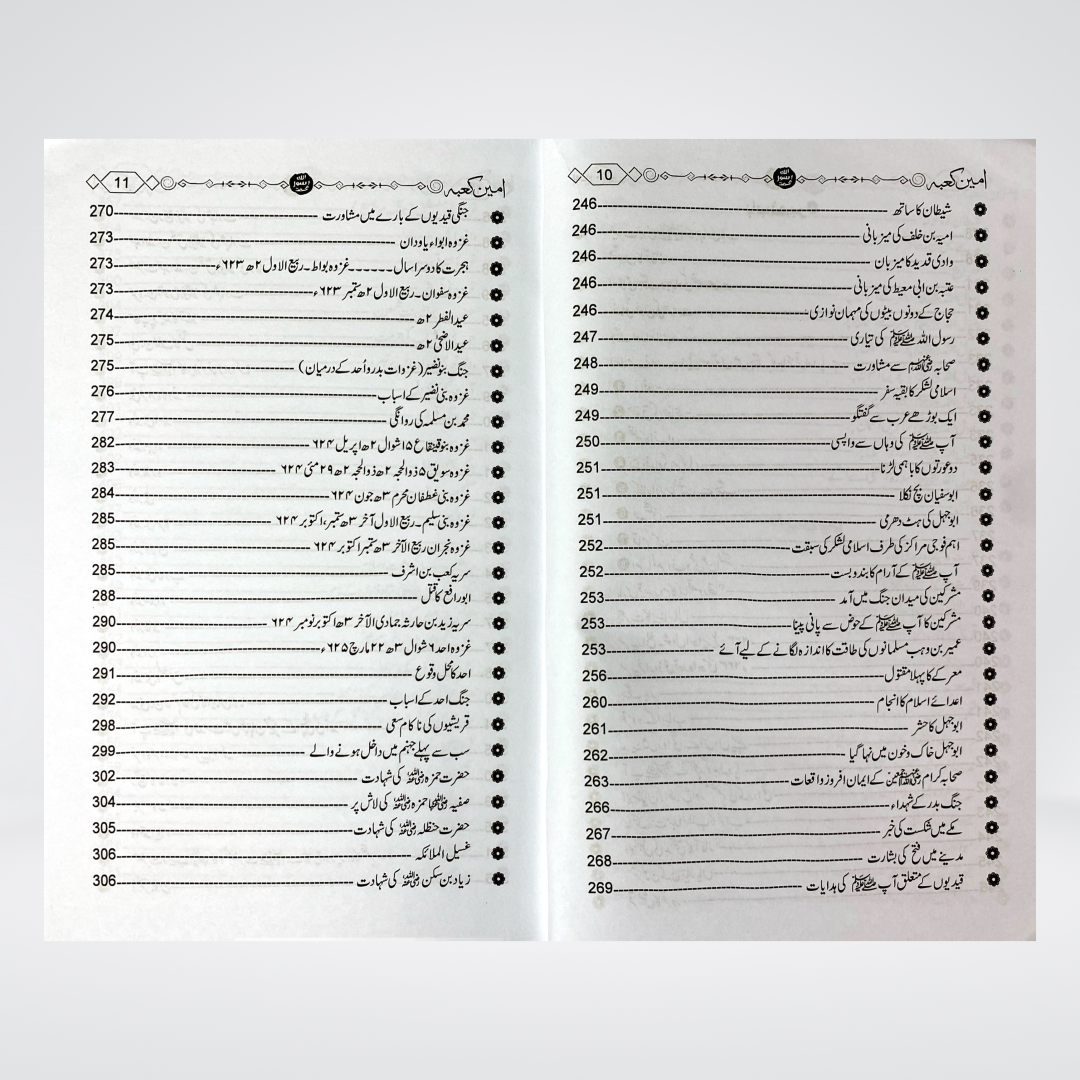 امین کعبہ 10
شیطان کا ساتھ 246
امیہ بن خلف کی میزبانی 246
وادی قدید کا میزبان 246
عتبہ بن ابی معیط کی میزبانی 246
حجاج کے دونوں بیٹوں کی مہمان نوازی 246
رسول اللہ ﷺ کی تیاری 247
صحابہ رضی اللہ عنہم سے مشاورت 248
اسلامی لشکر کا بقیہ سفر 249
ایک بوڑھے عرب سے گفتگو 249
آپ ﷺ کی وہاں سے واپسی 250
دو عورتوں کا باہمی لڑنا 251
ابوسفیان بچ نکلا 251
ابوجہل کی ہٹ دھرمی 251
اہم فوجی مراکز کی طرف اسلامی لشکر کی سبقت 252
آپ ﷺ کے آرام کا بندوبست 252
مشرکین کی میدان جنگ میں آمد 253
مشرکین کا آپ ﷺ کے حوض سے پانی پینا 253
عمیر بن وہب مسلمانوں کی طاقت کا اندازہ لگانے کے لیے آئے 253
معرکے کا پہلا مقتول 256
اعدائے اسلام کا انجام 260
ابوجہل کا حشر 261
ابوجہل خاک و خون میں نہا گیا 262
صحابہ کرام رضی اللہ عنہم اجمعین کے ایمان افروز واقعات 263
جنگ بدر کے شہداء 266
مکے میں شکست کی خبر 267
مدینے میں فتح کی بشارت 268
قیدیوں کے متعلق آپ ﷺ کی ہدایات 269
امین کعبہ 11
جنگی قیدیوں کے بارے میں مشاورت 270
غزوہ ابواء یا ودان 273
ہجرت کا دوسرا سال۔۔۔۔۔۔غزوہ بواط۔ربیع الاول ۲ھ ۶۲۳ء 273
غزوہ سفوان۔ربیع الاول ۲ھ ستمبر ۶۲۳ء 273
عید الفطر ۲ھ 274
عید الاضحیٰ ۲ھ 275
جنگ بنو نضیر (غزوات بدر و اُحد کے درمیان) 275
غزوہ بنی نضیر کے اسباب 276
محمد بن مسلمہ کی روانگی 277
غزوہ بنو قینقاع ۱۵ شوال ۲ھ اپریل ۶۲۴ 282
غزوہ سویق ۵ ذوالحجہ ۲ھ ذوالحجہ ۲ھ ۲۹ مئی ۶۲۴ 283
غزوہ بنی غطفان محرم ۳ھ جون ۶۲۴ 284
غزوہ بنی سلیم۔ربیع الاول آخر ۳ھ ستمبر، اکتوبر ۶۲۴ 285
غزوہ نجران ربیع الآخر ۳ھ ستمبر اکتوبر ۶۲۴ 285
سریہ کعب بن اشرف 285
ابورافع کا قتل 288
سریہ زید بن حارثہ جمادی الآخر ۳ھ اکتوبر نومبر ۶۲۴ 290
غزوہ احد ۶ شوال ۳ھ ۲۲ مارچ ۶۲۵ء 290
احد کا محل وقوع 291
جنگ احد کے اسباب 292
قریشیوں کی ناکام سعی 298
سب سے پہلے جہنم میں داخل ہونے والے 299
حضرت حمزہ رضی اللہ عنہ کی شہادت 302
صفیہ رضی اللہ عنہا حمزہ رضی اللہ عنہ کی لاش پر 304
حضرت حنظلہ رضی اللہ عنہ کی شہادت 305
غسیل الملائکہ 306
زیاد بن سکن رضی اللہ عنہ کی شہادت 306